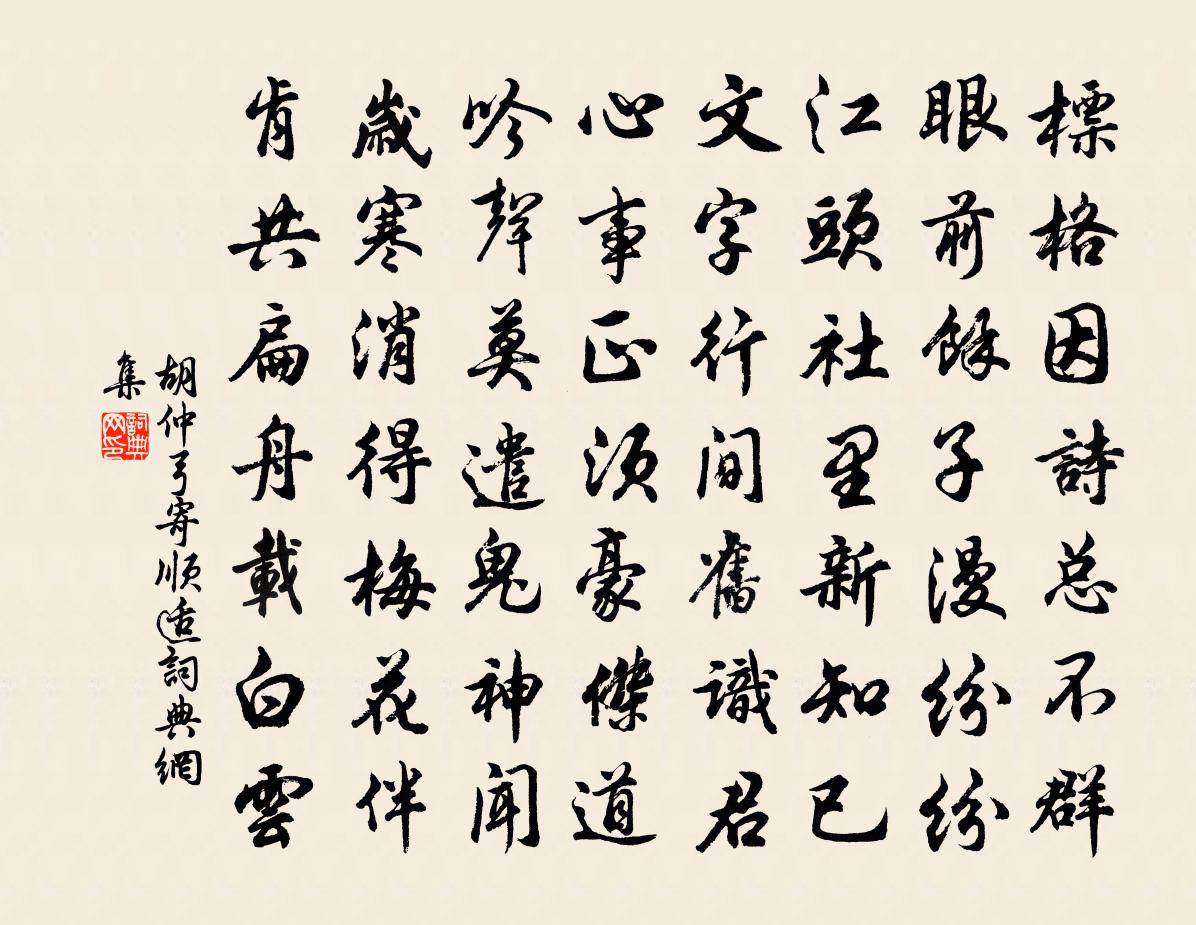 標格因詩总不群
眼前餘子漫紛紛
江頭社里新知己
文字行間舊識君
心事正須豪傑道
吟聲莫遣鬼神聞
歲寒消得梅花伴
肯共扁舟載白雲
胡仲弓寄順适詞典網
集
詞典网印